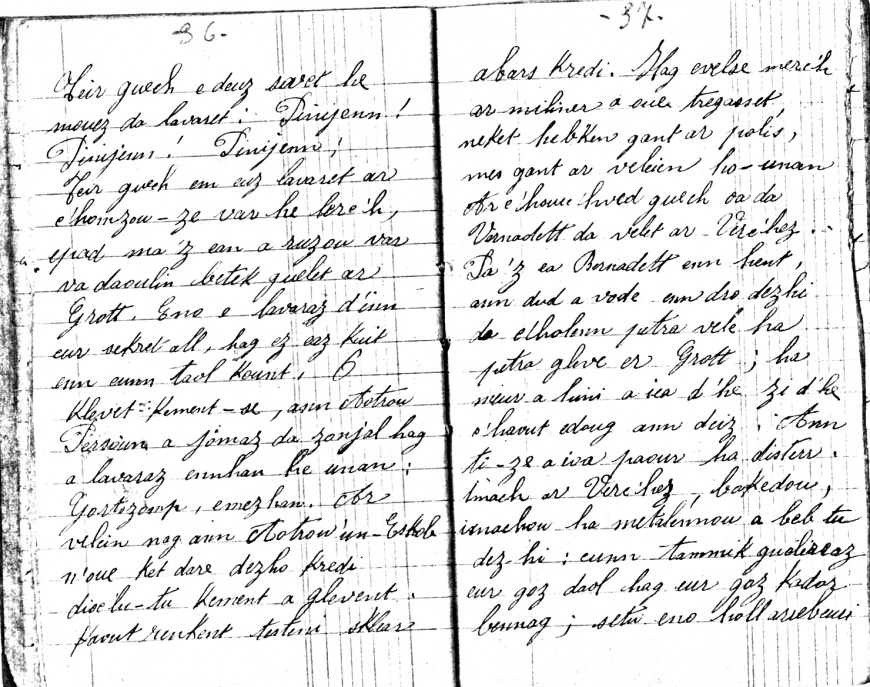 -36-
Teir guech e deuz savet he
mouez da lavaret : Pinijenn !
Pinijenn ! Pinijenn !
Teir guech em euz lavaret ar
c'homzou-ze var he lerc'h,
epad ma 'z ean a ruzou var
va daoulin betek guelet ar
Grott. Eno e lavaraz d'éin
eur sekret all, hag ez eaz kuit
enn eunn taol kount. 6
Klevet kement-se, ann Aotrou
Persoun a jomaz da zonjal hag
a lavaraz ennhan he unan :
Gortozomp, emezhan. Ar
velein nag ann Aotrou'un-Eskob
n'oue ket dare dezho kredi
dioc'hu-tu kement a glevent.
favout renkent testeni sklear
-37-
abars kredi. Hag evelse merc'h
ar miliner a oue tregasset,
neket hebken gant ar polis,
mes gant ar veleien ho-unan
Ar c'houec'hved guech oa da
Vernadett da velet ar Verc'hez.
Pa 'z ea Bernadett enn hent,
ann dud a vode enn dro dezhi
da c'houlenn petra vele ha
petra gleve er Grott ; ha
nieur a hini a iea d'he zi d'he
c'haout edoug ann deiz. Ann
ti-ze a ioa paour ha disterr.
Imach ar Verc'hez, bokedou,
imachou ha metalennou a beb tu
dez-hi : eunn tammik gueleeaz
eur goz daol hag eur goz kador
bennag ; setu eno holl arrebeuri